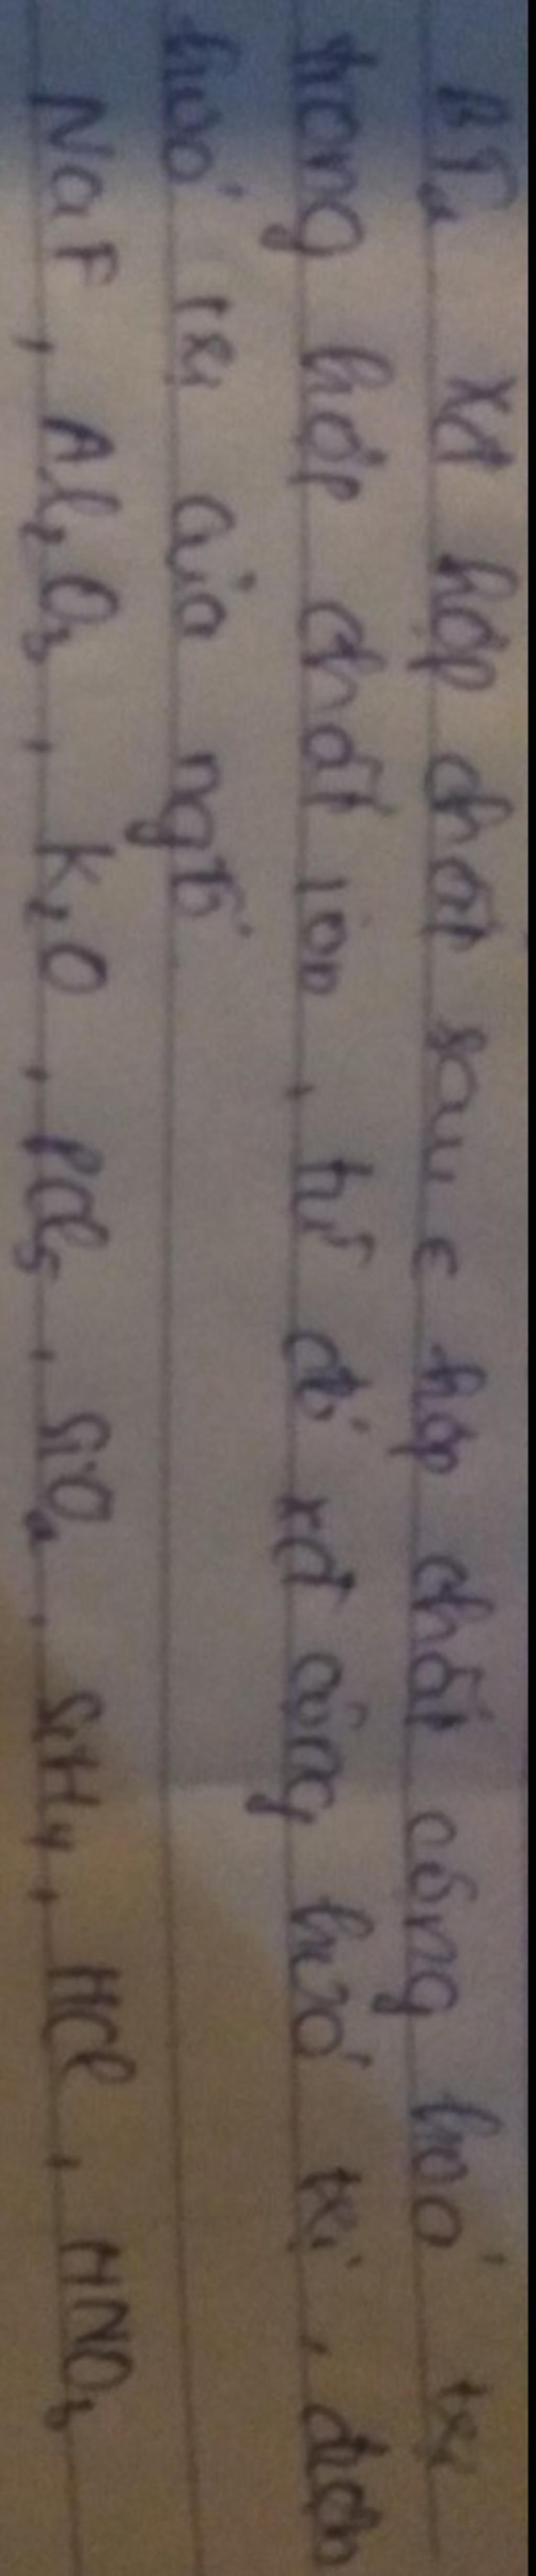 BT4 Xđ hợp chất sau ∈ hợp chất cộng hoá trị
hong hợp chất ion, từ đó xđ cộng hoá trị, điện
hoá trị của ngtố
NaF, Al₂O₃, K₂O, PCl₅, SiO₂, SiH₄, HCl, HNO₃